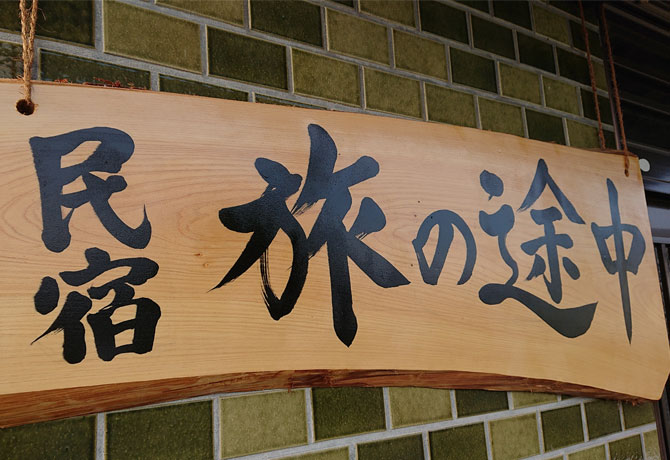 民宿
旅の途中